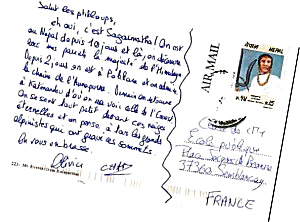 Salut les ptitloups,
eh oui, c'est Sagarmatha! On est
au Népal depuis 10 jours et là, on découvre
avec nos yeux la majesté de l'Himalaya
Depuis 2 jours on est à Pokhara et on admire
la chaîne de l'Annapurna. Demain on retourne
à Katmandou d'où on ira voir celle de l'Everest
On se sent tout petit devant ces neiges
éternelles et on pense à tous les grands
alpinistes qui ont gravi ces sommets.
On vous embrasse
Olivier
AIR MAIL
NEPAL
Classe de CM
École publique
Place
37360 Semblançay
FRANCE